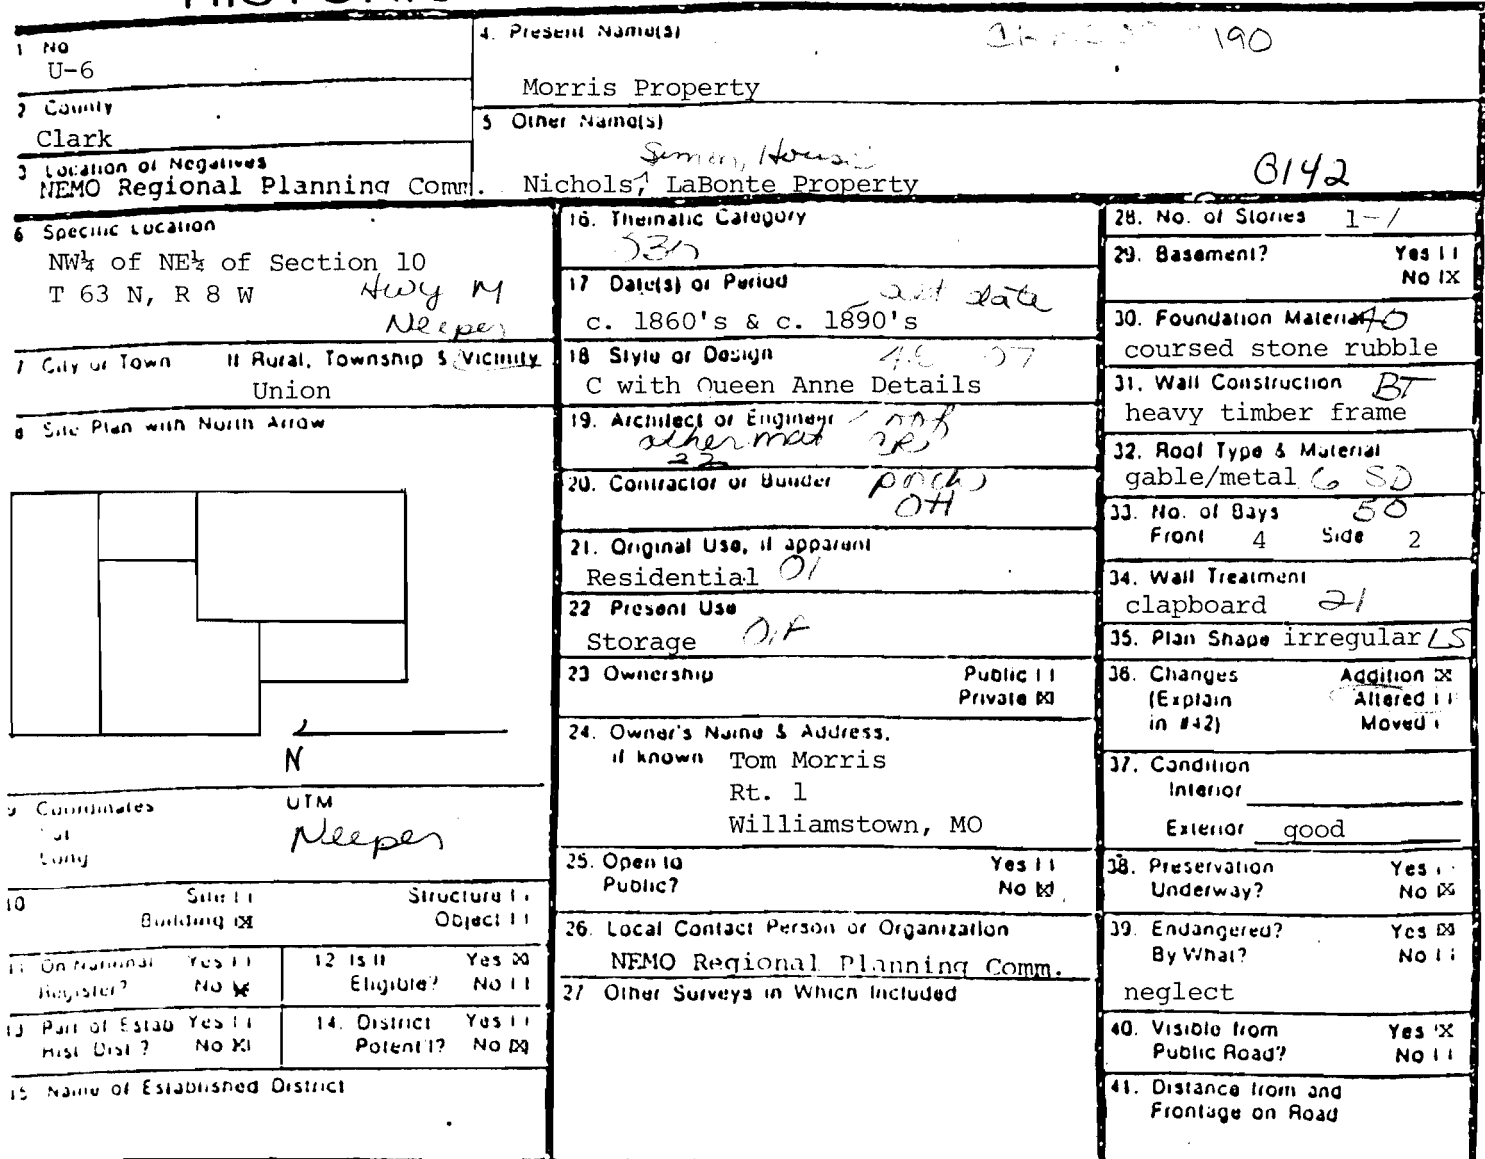 1 No
U-6
2 County
Clark
3 Location of Negatives
NEMO Regional Planning Comm.
4. Present Name(s)
190
Morris Property
5 Other Name(s)
House
Nichols, LaBonte Property
0142
6 Specific Location
NW¼ of NE¼ of Section 10
T 63 N, R 8 W Hwy M
Neeper
7 City or Town If Rural, Township & Vicinity
Union
8 Site Plan with North Arrow
N
9 Coordinates UTM
Lat
Long
Neeper
10 Site [ ] Structure [ ]
Building [X] Object [ ]
11 On National Register? Yes [ ] No [X]
12 Is It Eligible? Yes [X] No [ ]
13 Part of Estab Hist Dist? Yes [ ] No [X]
14. District Potent'l? Yes [ ] No [X]
15 Name of Established District
16. Thematic Category
17 Date(s) or Period
date
c. 1860's & c. 1890's
18 Style or Design
C with Queen Anne Details
19. Architect or Engineer
other mat
22
20. Contractor or Builder
porch
OH
21. Original Use, if apparent
Residential 01
22 Present Use
Storage
23 Ownership Public [ ]
Private [X]
24. Owner's Name & Address,
if known Tom Morris
Rt. 1
Williamstown, MO
25. Open to Yes [ ]
Public? No [X]
26. Local Contact Person or Organization
NEMO Regional Planning Comm.
27 Other Surveys in Which Included
28. No. of Stories 1-1
29. Basement? Yes [ ]
No [X]
30. Foundation Material 40
coursed stone rubble
31. Wall Construction BT
heavy timber frame
32. Roof Type & Material
gable/metal G SD
33. No. of Bays 50
Front 4 Side 2
34. Wall Treatment
clapboard 21
35. Plan Shape irregular LS
36. Changes Addition [X]
(Explain Altered [ ]
in #42) Moved [ ]
37. Condition
Interior
Exterior good
38. Preservation Yes [ ]
Underway? No [X]
39. Endangered? Yes [X]
By What? No [ ]
neglect
40. Visible from Yes [X]
Public Road? No [ ]
41. Distance from and
Frontage on Road